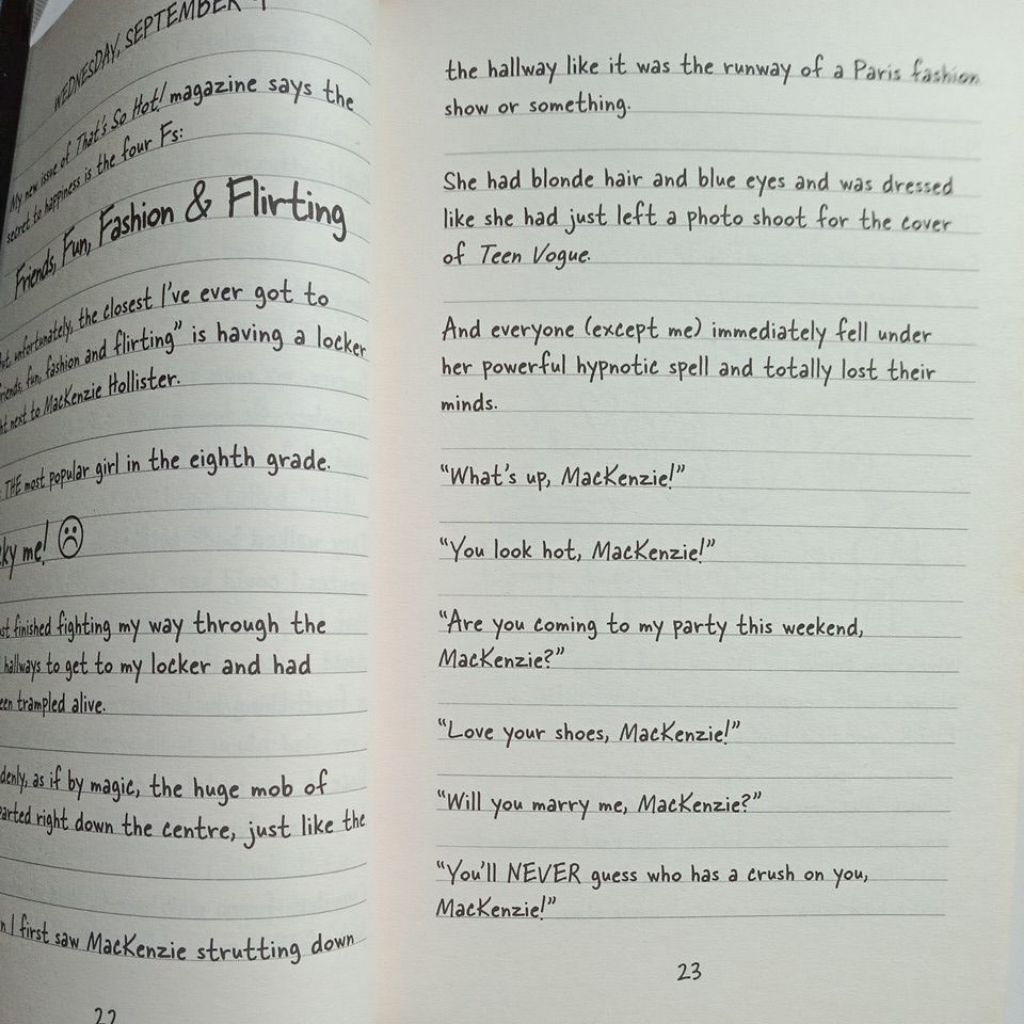 WEDNESDAY, SEPTEMBER
My new issue of That's So Hot! magazine says the
secret to happiness is the four Fs:
Friends, Fun, Fashion & Flirting
unfortunately, the closest I've ever got to
fun, fashion and flirting" is having a locker
next to MacKenzie Hollister.
THE most popular girl in the eighth grade.
me!
finished fighting my way through the
hallways to get to my locker and had
trampled alive.
as if by magic, the huge mob of
right down the centre, just like the
I first saw MacKenzie strutting down
22
the hallway like it was the runway of a Paris fashion
show or something.
She had blonde hair and blue eyes and was dressed
like she had just left a photo shoot for the cover
of Teen Vogue.
And everyone (except me) immediately fell under
her powerful hypnotic spell and totally lost their
minds.
"What's up, MacKenzie!"
"You look hot, MacKenzie!"
"Are you coming to my party this weekend,
MacKenzie?"
"Love your shoes, MacKenzie!"
"Will you marry me, MacKenzie?"
"You'll NEVER guess who has a crush on you,
MacKenzie!"
23